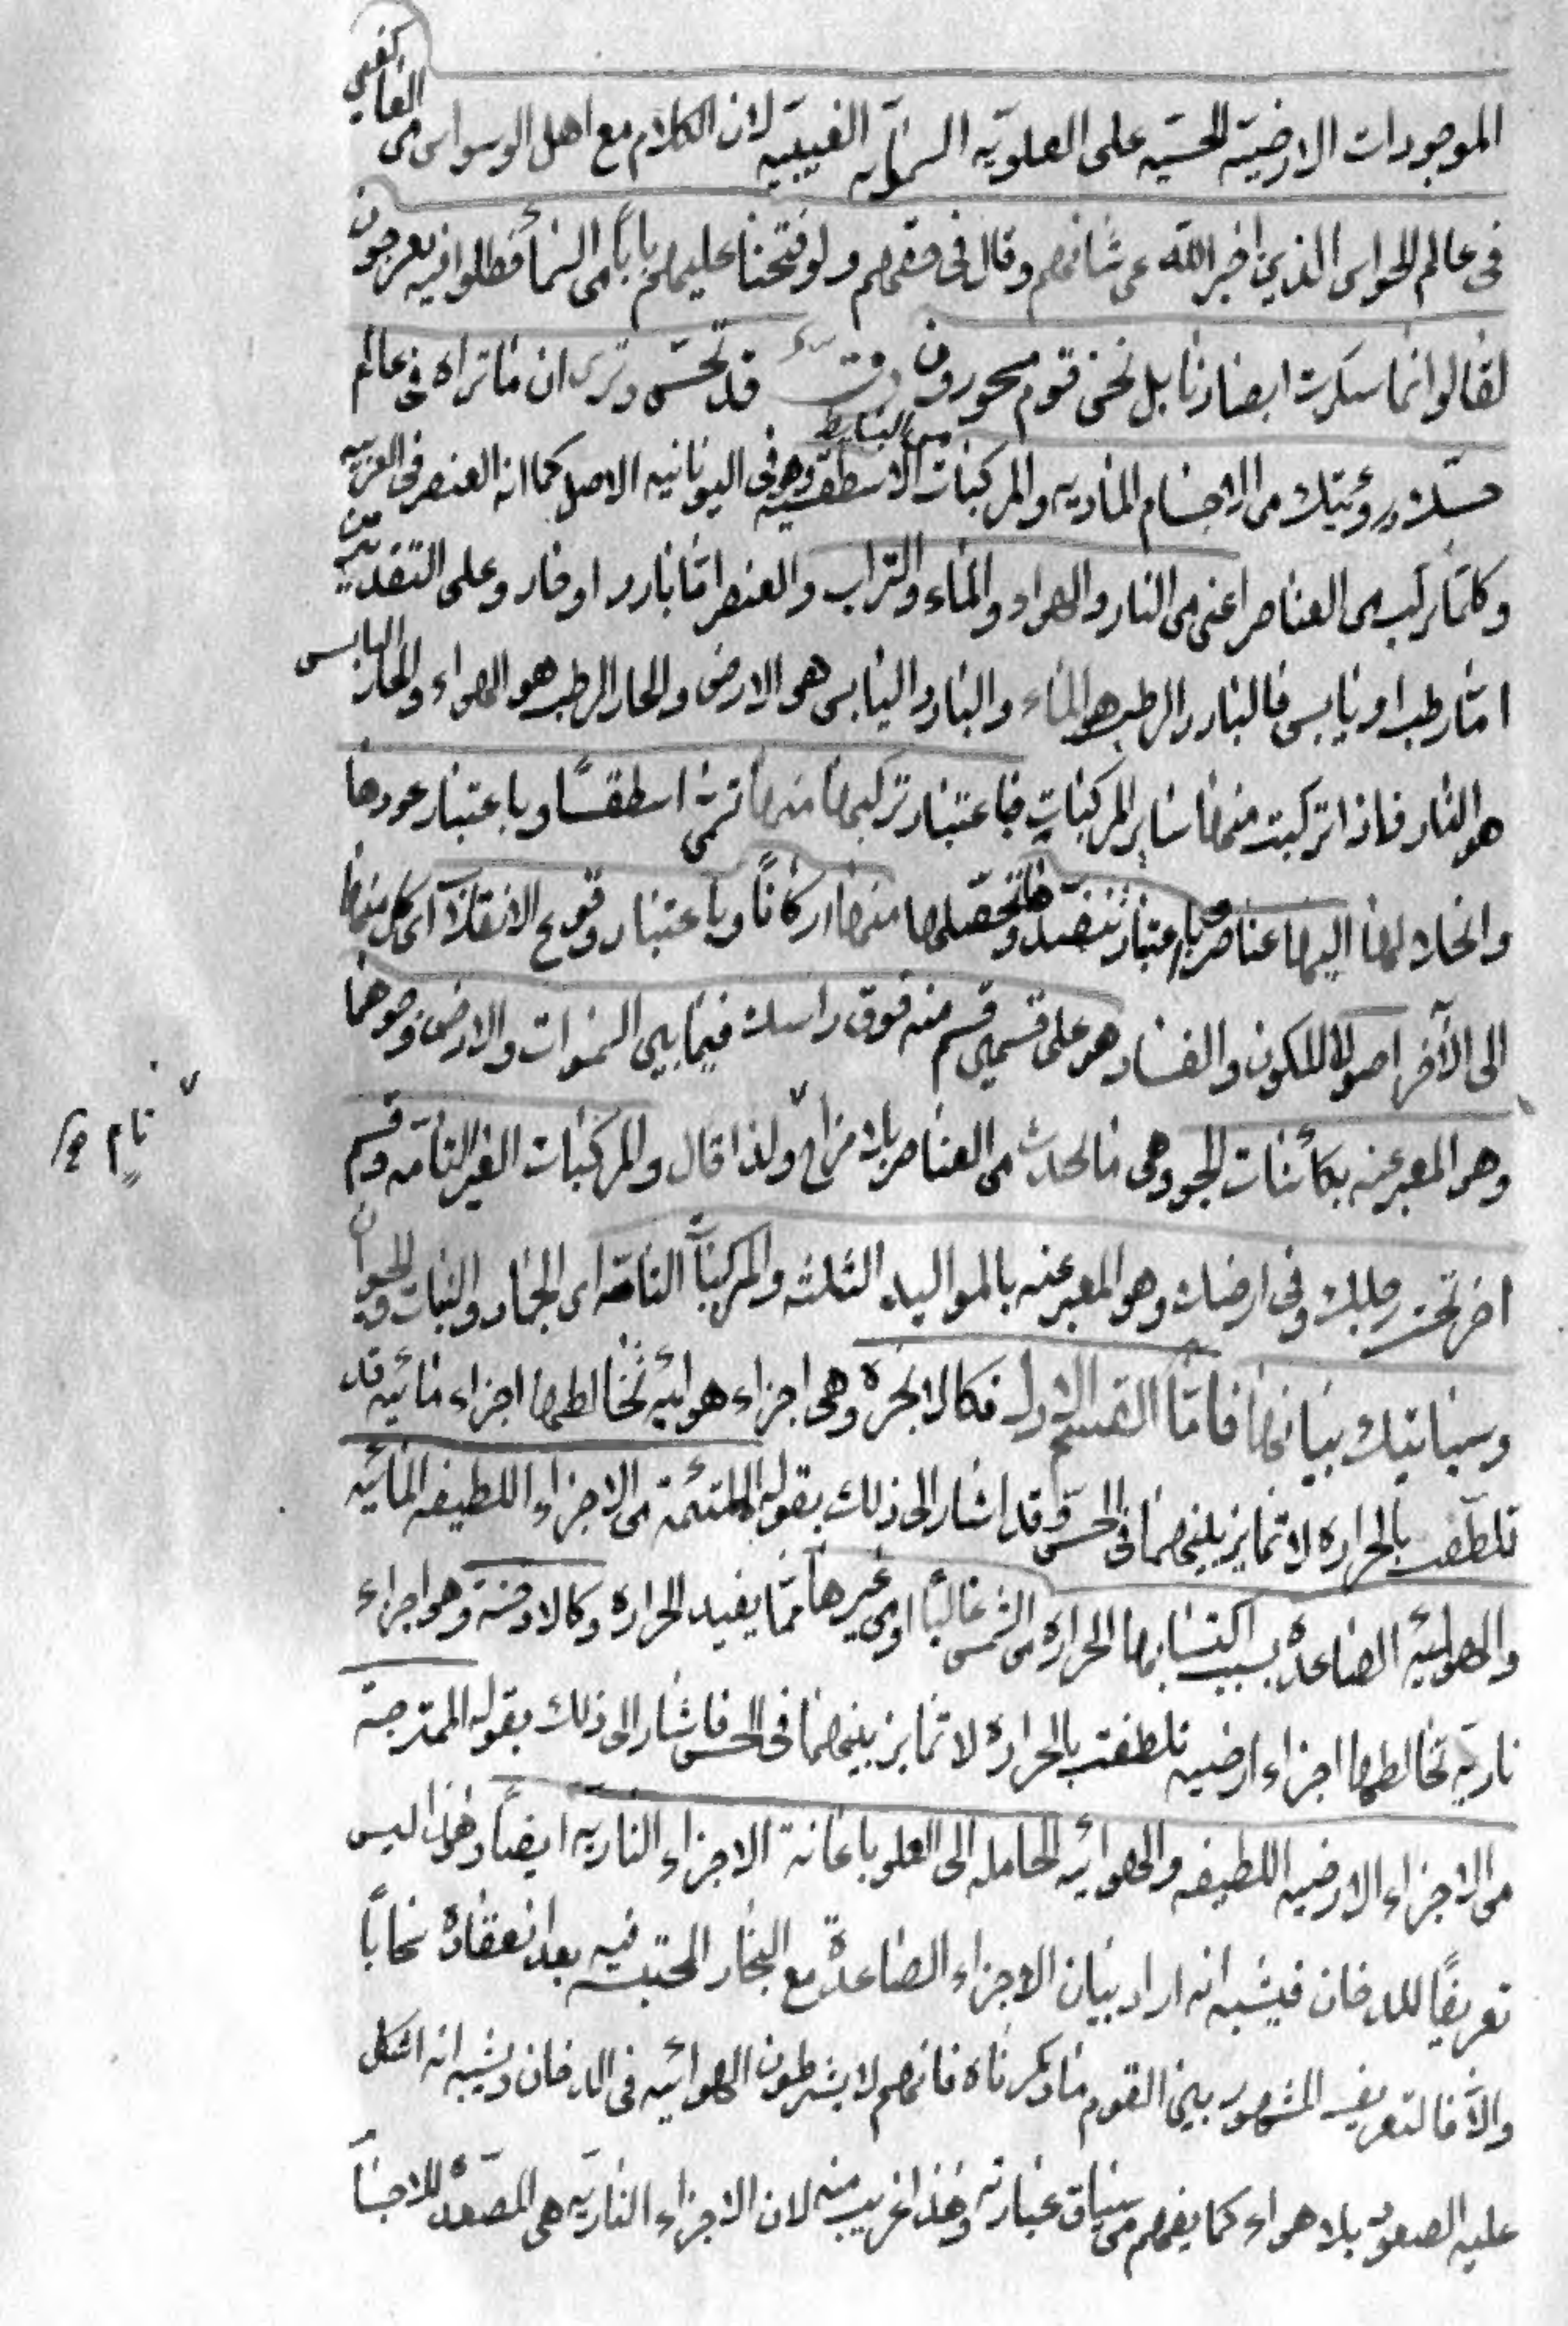 الموجودات الارضية الحسية على العلوية السماوية الغيبية لان الكلام مع اهل الوسواس من الغافلين
فى عالم الحواس الذين اخبر الله عن شانهم وقال فى حقهم ولو فتحنا عليهم بابا من السماء فظلوا فيه يعرجون
لقالوا انما سكرت ابصارنا بل نحن قوم مسحورون قد تحس وترى ان ما تراه فى عالم
حسك ورؤيتك من الاجسام المادية والمركبات الاسطقسية وهو فى اليونانية الاصل كما انه العنصر فى العربية
من البسايط
وكلما تركب من العناصر اعنى من النار والهواء والماء والتراب والعنصر اما بارد او حار وعلى التقديرين
اما رطب او يابس فالبارد الرطب هو الماء والبارد اليابس هو الارض والحار الرطب هو الهواء والحار اليابس
هو النار فاذا تركبت منها ساير المركبات فباعتبار تركبها منها تسمى اسطقسا وباعتبار عودها
وانحلالها اليها عناصر وباعتبار تنضدها وتحصلها منها اركانا وباعتبار وقوع الانقلاب اى كل منها
الى الآخر اصولا للكون والفساد وهو على قسمين قسم منه فوق راسك فيما بين السموات والارض وحوهما
وهو المعبر عنه بكائنات الجو وهى ما يحدث من العناصر بلا مزاج ولذا قال والمركبات الغير التامة وقسم
اخر تحت رجلك وفى ارضك وهو المعبر عنه بالمواليد الثلثة والمركبات التامة اى الجماد والنبات والحيوان
وسياتيك بيانها فاما القسم الاول فكالابخرة وهى اجزاء هوائية تخالطها اجزاء مائية قد
تلطفت بالحرارة لا تمايز بينهما فى الحس وقد اشار الى ذلك بقوله الملتئمة من الاجزاء اللطيفة المائية
والهوائية الصاعدة بسبب اكتسابها الحرارة من الشمس غالبا او من غيرها مما يفيد الحرارة وكالادخنة وهو اجزاء
نارية تخالطها اجزاء ارضية تلطفت بالحرارة لا تمايز بينهما فى الحس فاشار الى ذلك بقوله الممتزجة
من الاجزاء الارضية اللطيفة والهوائية الحاملة الى العلو باعانة الاجزاء النارية ايضا وهذا ليس
تعريفا للدخان فيشبه انه اراد بيان الاجزاء الصاعدة مع البخار المحتبسة فيه بعد انعقاده سحابا
والا فالتعريف المشهور بين القوم ما ذكرناه فانهم لا يشرطون الهوائية فى الدخان ويشبه انه اشكل
عليه الصعود بلا هواء كما يفهم من سياق عبارته وهذا غريب منه لان الاجزاء النارية هى المصعدة للاجسا